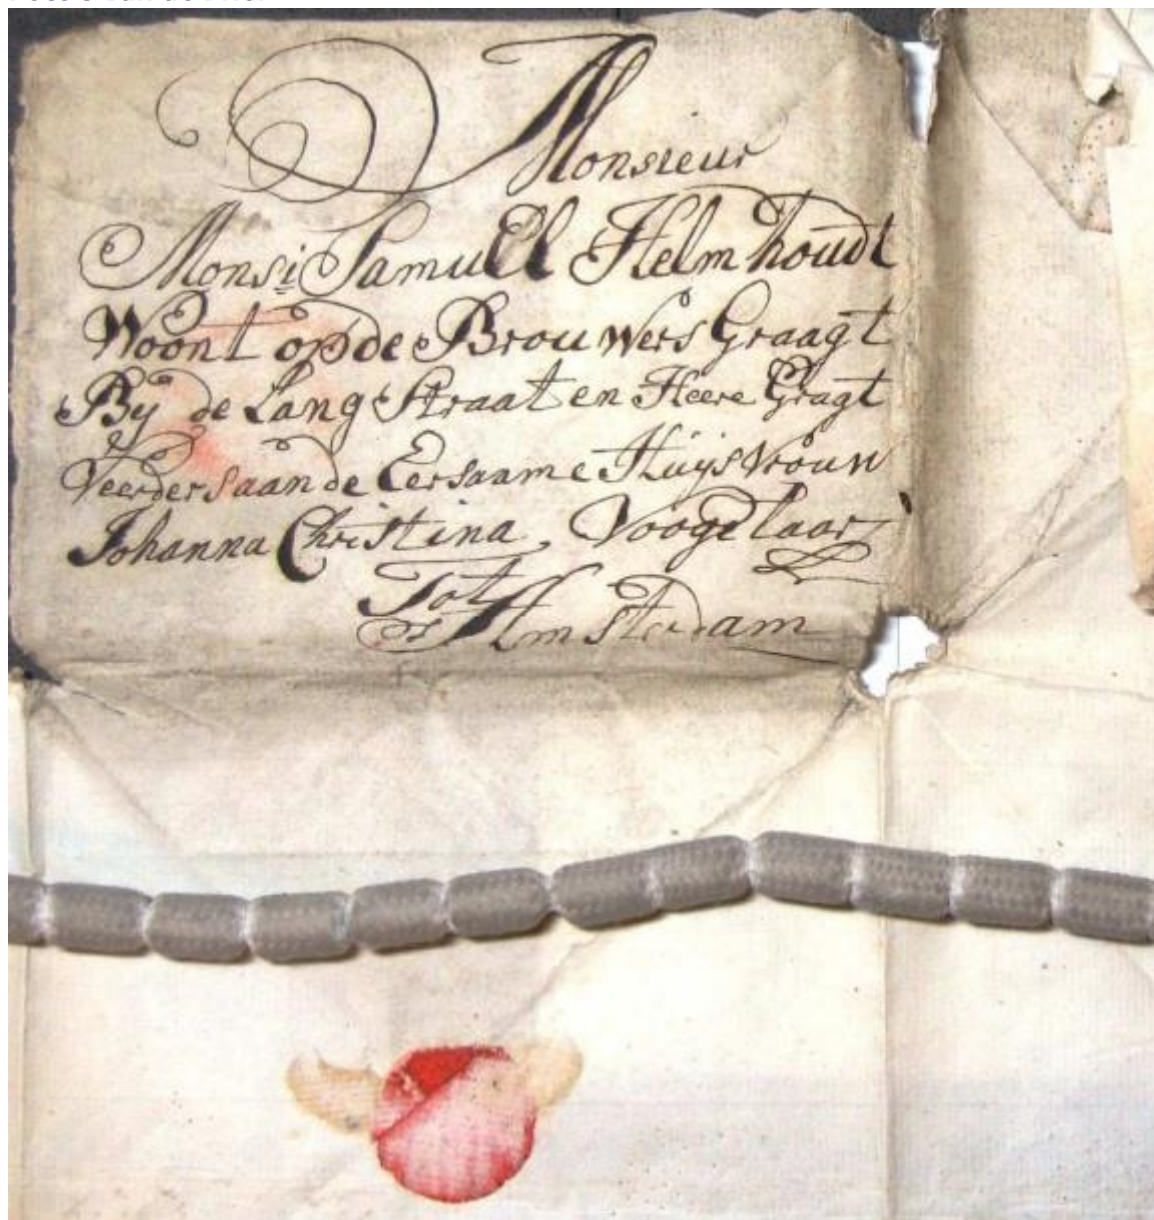 Monsieur
Monsr Samuel Helmhoudt
Woont op de Brouwers Graagt
By de Lang Straat en Heere Gragt
Veerders aan de Eersaame Huijs Vrouw
Johanna Christina Voogelaar
Tot
Amsterdam